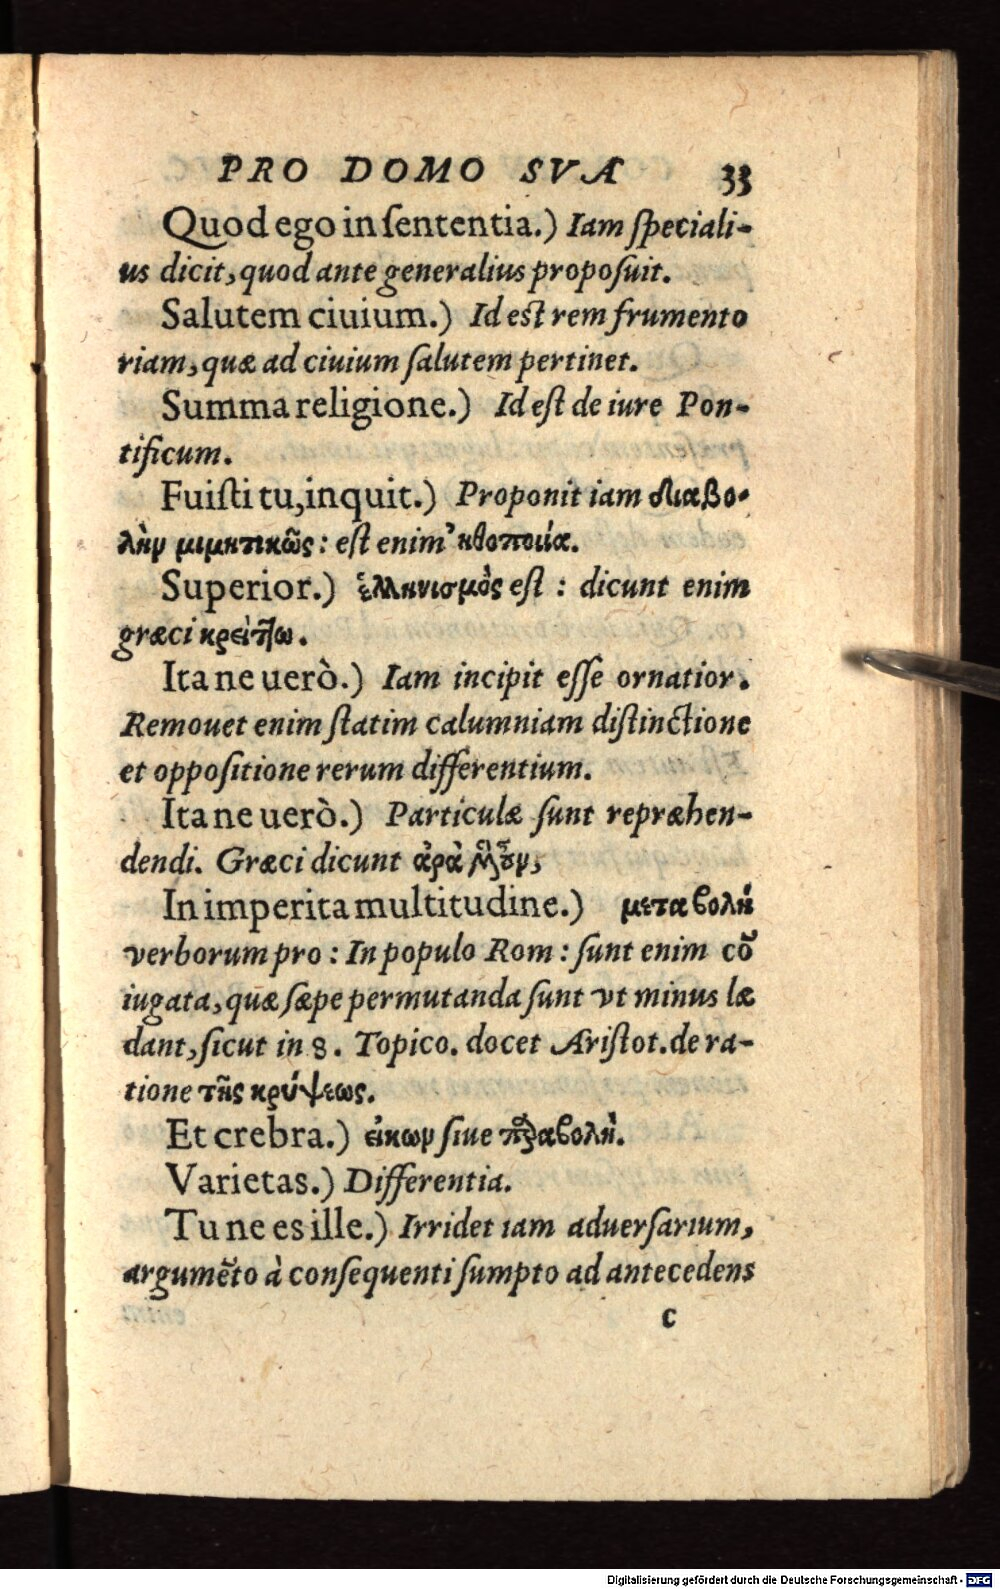 PRO DOMO SVA 33
Quod ego in ſententia.) Iam ſpeciali-
us dicit, quod ante generalius propoſuit.
Salutem ciuium.) Id eſt rem frumento
riam, quæ ad ciuium ſalutem pertinet.
Summa religione.) Id eſt de iure Pon-
tificum.
Fuiſti tu, inquit.) Proponit iam διαβο-
λὴν μιμητικῶς: eſt enim ἠθοποιία.
Superior.) ἑλληνισμὸς eſt : dicunt enim
græci κρείττω.
Ita ne uerò.) Iam incipit eſſe ornatior.
Remouet enim ſtatim calumniam diſtinctione
et oppoſitione rerum differentium.
Ita ne uerò.) Particulæ ſunt repræhen-
dendi. Græci dicunt ἀρὰ
In imperita multitudine.) μεταβολὴ
verborum pro : In populo Rom : ſunt enim cō
iugata, quæ ſæpe permutanda ſunt vt minus læ
dant, ſicut in 8. Topico. docet Ariſtot. de ra-
tione τῆς κρύψεως.
Et crebra.) εἰκων ſiue παραβολὴ.
Varietas.) Differentia.
Tu ne es ille.) Irridet iam aduerſarium,
argumēto à conſequenti ſumpto ad antecedens
c
Digitalisierung gefördert durch die Deutsche Forschungsgemeinschaft - DFG